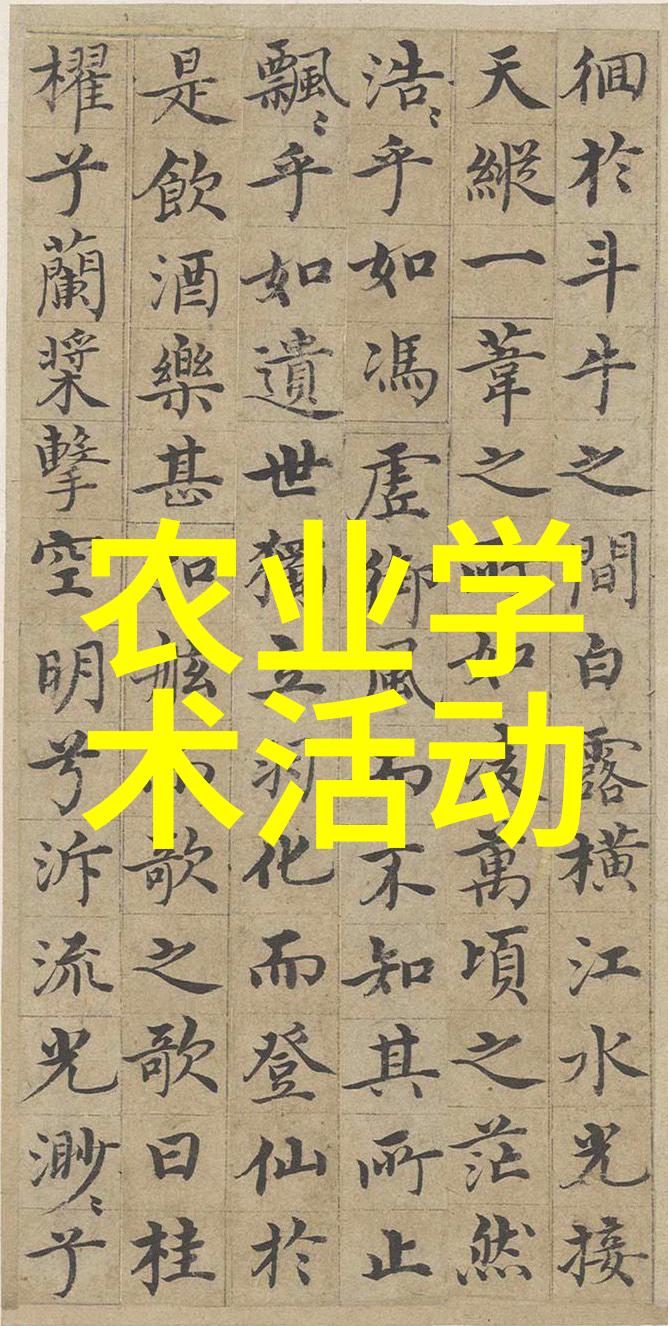 徊於斗牛之間白露橫江水光接
天縱一葦之所如凌萬頃之茫然
浩〻乎如馮虛御風而不知其所止
飄〻乎如遺世獨立羽化而登仙於
是飲酒樂甚扣舷而歌之歌曰桂
櫂兮蘭槳擊空明兮泝流光渺〻兮
农业学
术活动